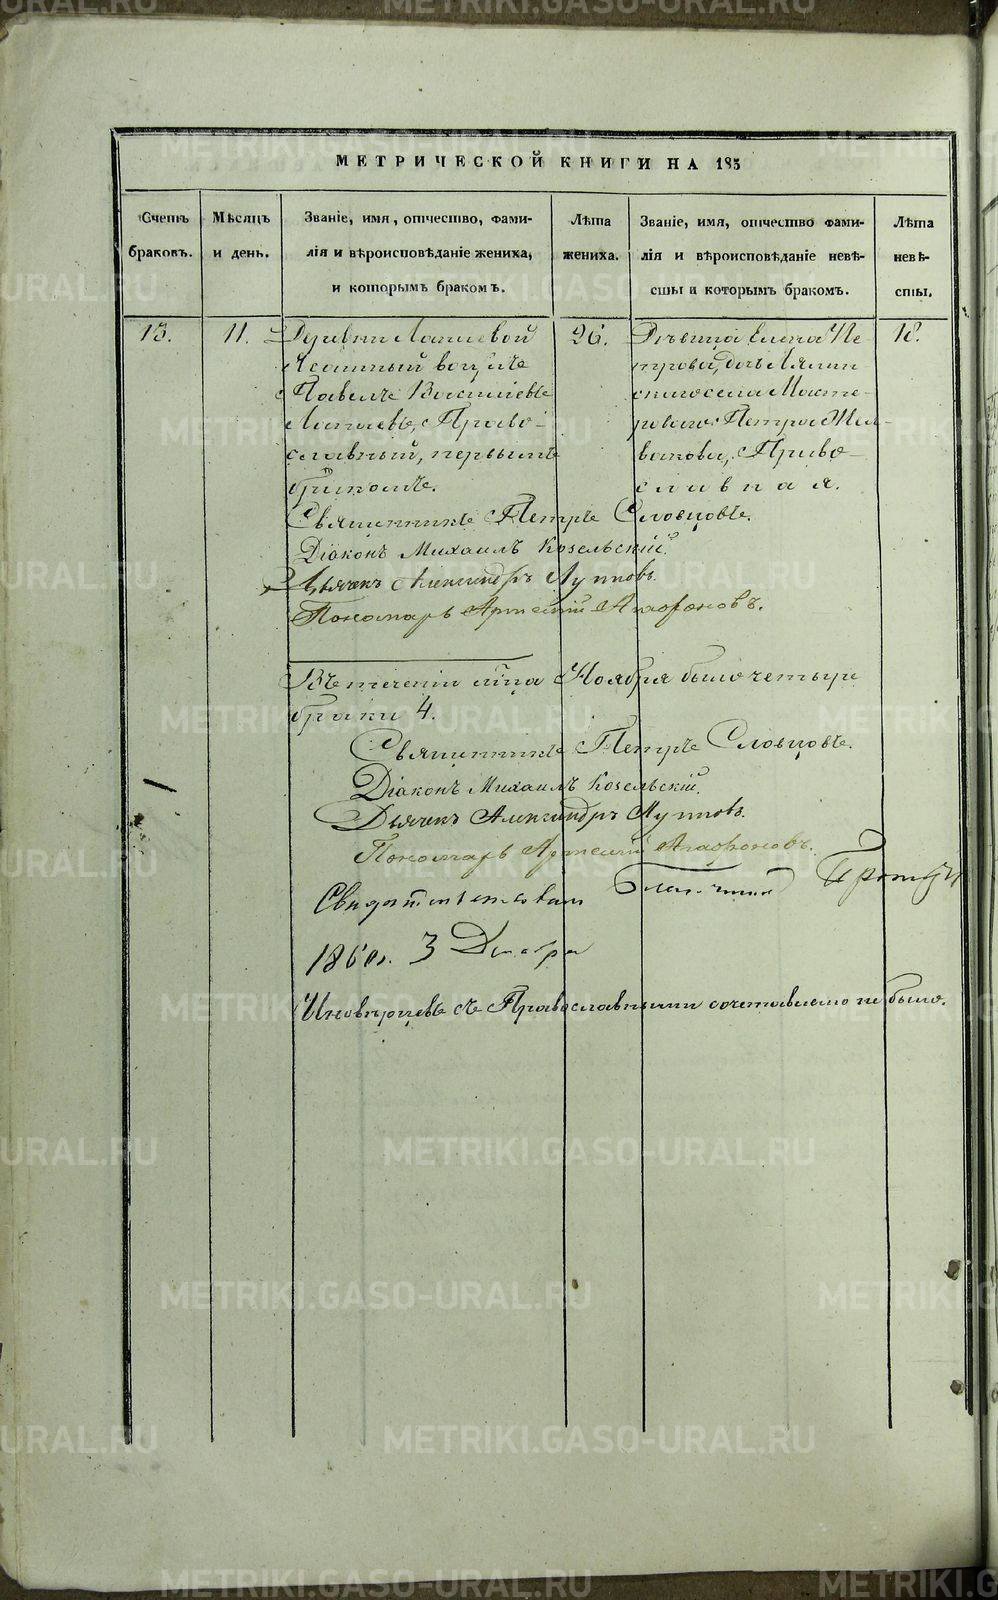 МЕТРИЧЕСКОЙ КНИГИ НА 185
Счетъ браковъ.
Мѣсяцъ и день.
Званіе, имя, отчество, фами-
лія и вѣроисповѣданіе жениха,
и которымъ бракомъ.
Лѣта жениха.
Званіе, имя, отчество фами-
лія и вѣроисповѣданіе невѣ-
сты и которымъ бракомъ.
Лѣта невѣ-
сты.
13.
11.
Деревни Лапшевой
вонъ
Павелъ Василіевъ
Право-
славный, первымъ
бракомъ.
26.
Дѣвица Елена Пе-
трова, дочь
села Масте-
роваго Петра Жел-
вакова, Право-
славная.
18.
Священникъ Петръ Словцовъ.
Діаконъ Михаилъ Козельскій.
Дьячекъ Александръ Лупповъ.
Пономарь Артемій Агафоновъ.
Въ теченіи мѣца Ноября было четыре
брака 4.
Священникъ Петръ Словцовъ.
Діаконъ Михаилъ Козельскій.
Дьячекъ Александръ Лупповъ.
Пономарь Артемій Агафоновъ.
Свидѣтельствовалъ Благочинный
3 Декабря
Иновѣрцевъ съ Православными сочетаваемо не было.
METRIKI.GASO-URAL.RU